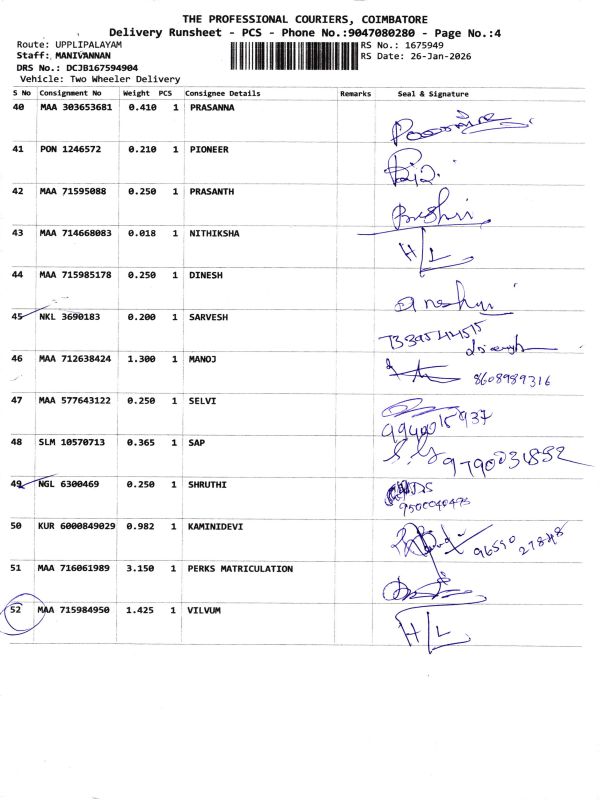 THE PROFESSIONAL COURIERS, COIMBATORE
Delivery Runsheet - PCS - Phone No.:9047080280 - Page No.:4
Route: UPPLIPALAYAM RS No.: 1675949
Staff: MANIVANNAN RS Date: 26-Jan-2026
DRS No.: DCJB167594904
Vehicle: Two Wheeler Delivery
S No Consignment No Weight PCS Consignee Details Remarks Seal & Signature
40 MAA 303653681 0.410 1 PRASANNA
41 PON 1246572 0.210 1 PIONEER
42 MAA 71595088 0.250 1 PRASANTH
43 MAA 714668083 0.018 1 NITHIKSHA H/L
44 MAA 715985178 0.250 1 DINESH
45 NKL 3690183 0.200 1 SARVESH
46 MAA 712638424 1.300 1 MANOJ 8608989316
47 MAA 577643122 0.250 1 SELVI 9940015937
48 SLM 10570713 0.365 1 SAP 9790031852
49 NGL 6300469 0.250 1 SHRUTHI 9500040495
50 KUR 6000849029 0.982 1 KAMINIDEVI 96590 27848
51 MAA 716061989 3.150 1 PERKS MATRICULATION
52 MAA 715984950 1.425 1 VILVUM H/L